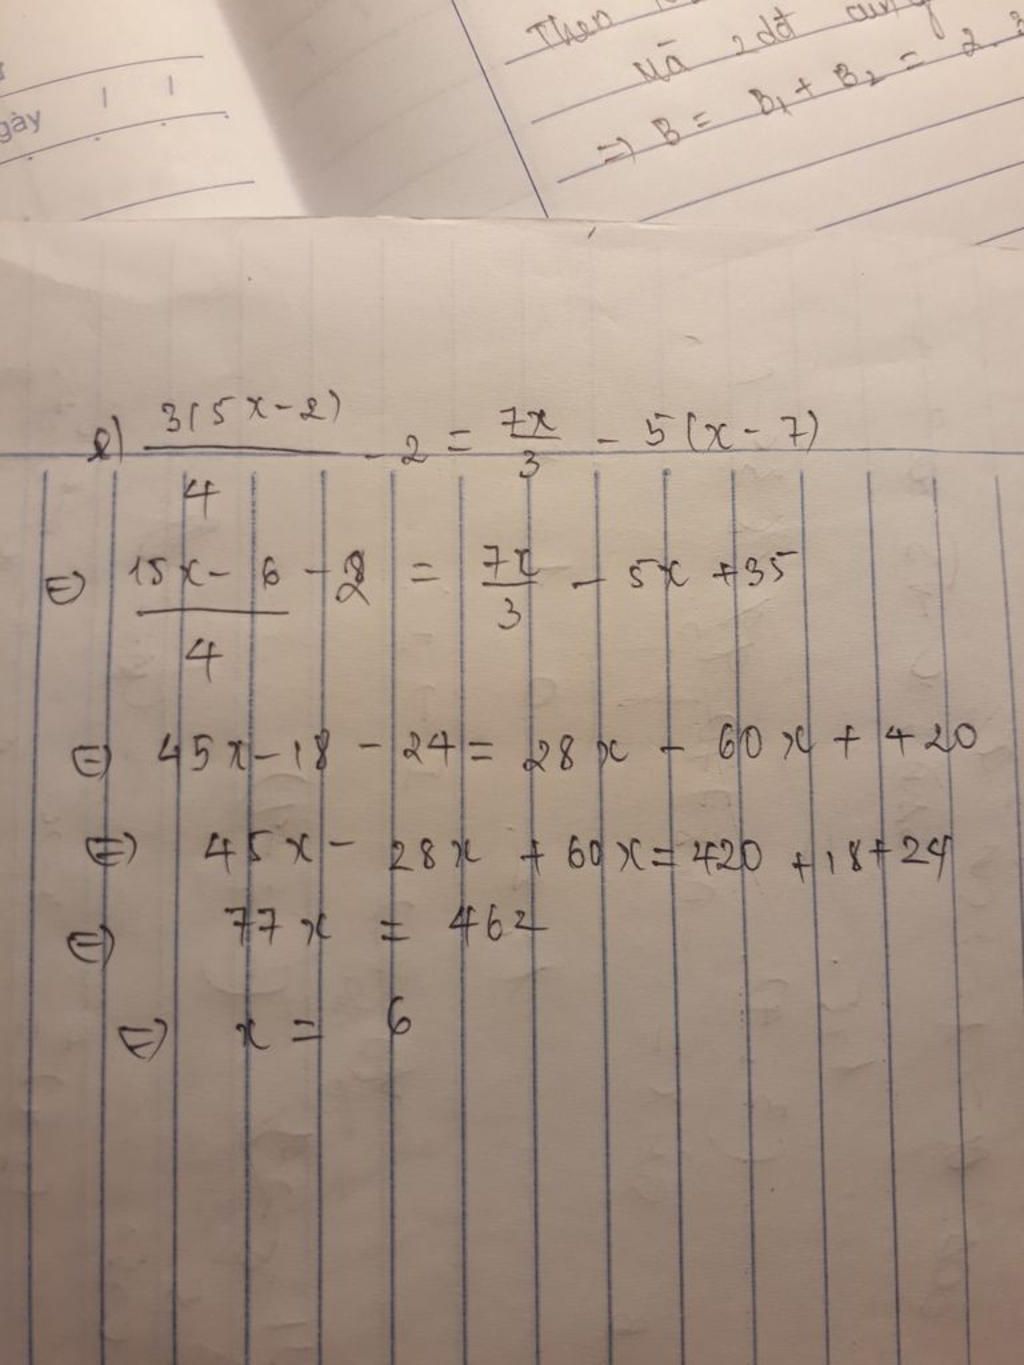 gày
Then
Mà 2dđ cùng
=> B = B₁ + B₂ = 2.
e) 3(5x-2)/4 - 2 = 7x/3 - 5(x-7)
<=> 15x-6/4 - 2 = 7x/3 - 5x +35
<=> 45x-18 - 24 = 28x - 60x + 420
<=> 45x - 28x + 60x = 420 +18+24
<=> 77x = 462
<=> x = 6